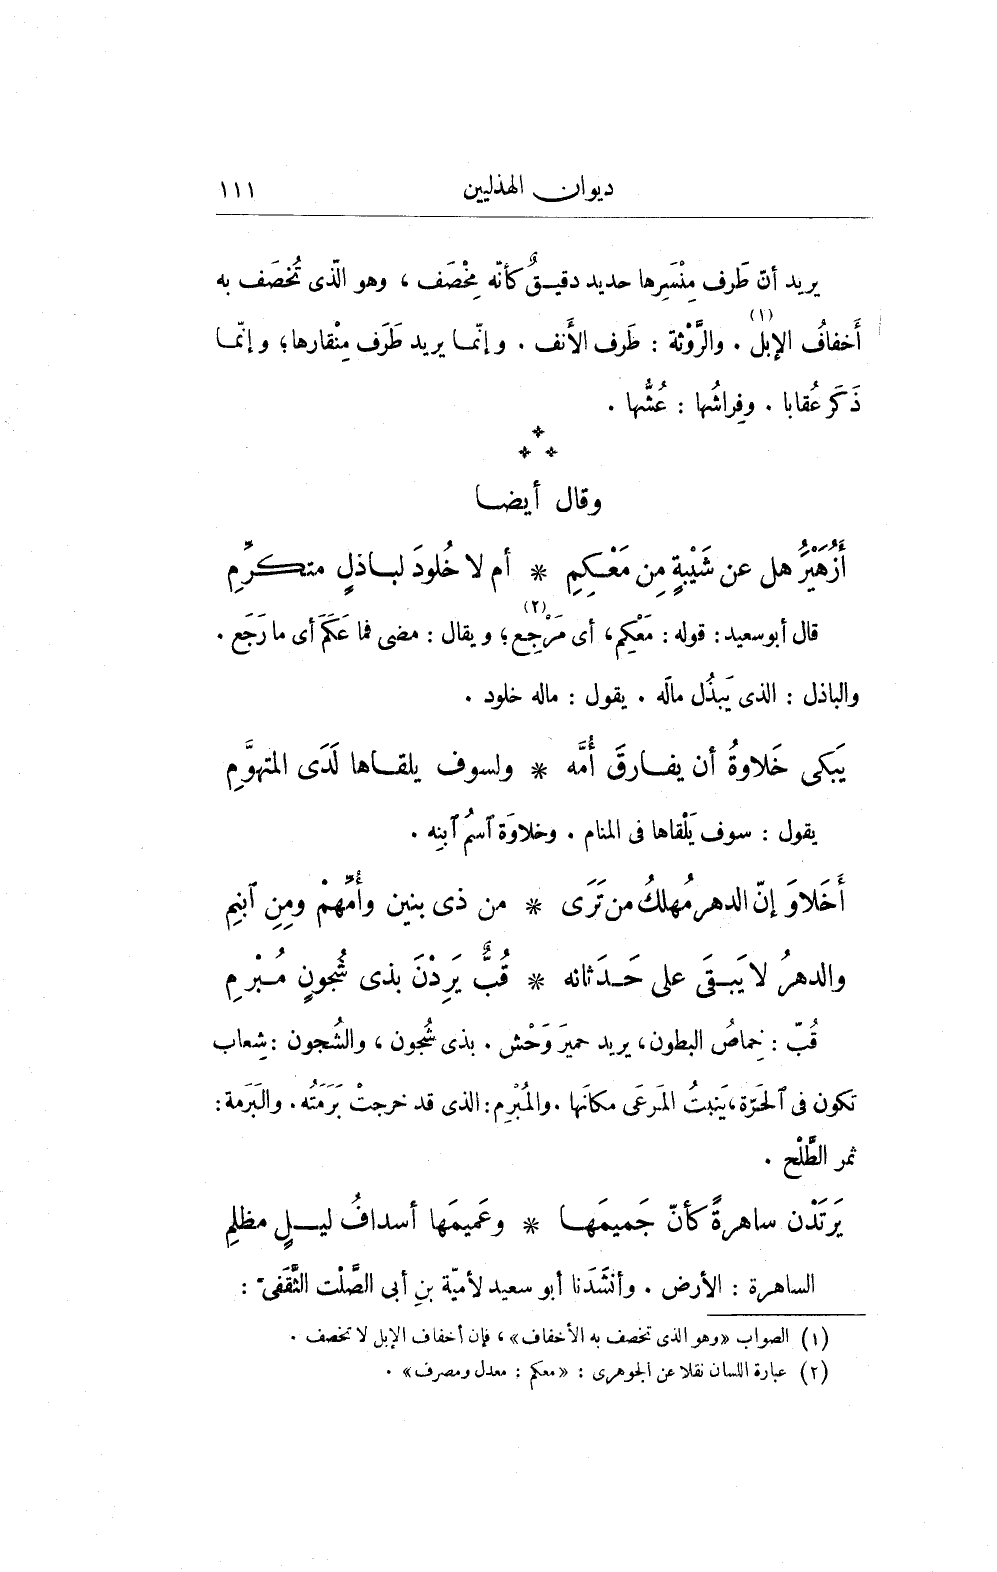 ديوان الهذليين ١١١
يريد أنّ طَرف مِنْسَرِها حديد دقيقٌ كأنّه مِخْصَف ، وهو الّذى تُخصَف به
أخفافُ الإبل (١) . والرَّوْثة : طَرف الأَنف . وإنّما يريد طَرَف مِنْقارها؛ وإنّما
ذَكَر عُقابا . وفِراشُها : عُشُّها .
وقال أيضا
أَزُهَيْرُ هل عن شَيْبةٍ مِن مَعْكِمِ * أم لا خُلودَ لباذلٍ متكرِّمِ
قال أبو سعيد : قوله : مَعْكِم، أى مَرْجِع (٢)؛ ويقال : مضى فما عَكَمَ أى ما رَجَع .
والباذل : الذى يَبذُل مالَه . يقول : ماله خلود .
يَبكى خَلاوةُ أن يفارقَ أُمَّه * ولسوف يلقاها لَدَى المتهوِّمِ
يقول : سوف يَلْقاها فى المنام . وخلاوَة ٱسمُ ٱبنِه .
أَخَلاوَ إنّ الدهر مُهلكُ من تَرَى * من ذى بنين وأُمِّهمْ ومِنِ ٱبنِم
والدهرُ لا يَبقَى على حَدَثانه * قُبٌّ يَرِدْنَ بذى شُجونٍ مُبْرِمِ
قُبّ : خِماصُ البطون، يريد حميرَ وَحْش . بذى شُجون ، والشُجون : شِعاب
تكون فى ٱلحَرّة، يَنبتُ المَرعَى مكانَها . والمُبْرِم : الذى قد خرجتْ بَرَمَتُه . والبَرَمة :
ثمر الطَّلْح .
يَرتَدْن ساهرةً كأنّ جَميمَها * وعَميمَها أسدافُ ليلٍ مظلِمِ
الساهرة : الأرض . وأنشَدَنا أبو سعيد لأميّة بنِ أبى الصَّلْت الثَّقَفىّ :
(١) الصواب «وهو الذى تخصف به الأخفاف» ، فإن أخفاف الإبل لا تخصف .
(٢) عبارة اللسان نقلا عن الجوهرى : «معكم : معدل ومصرف» .